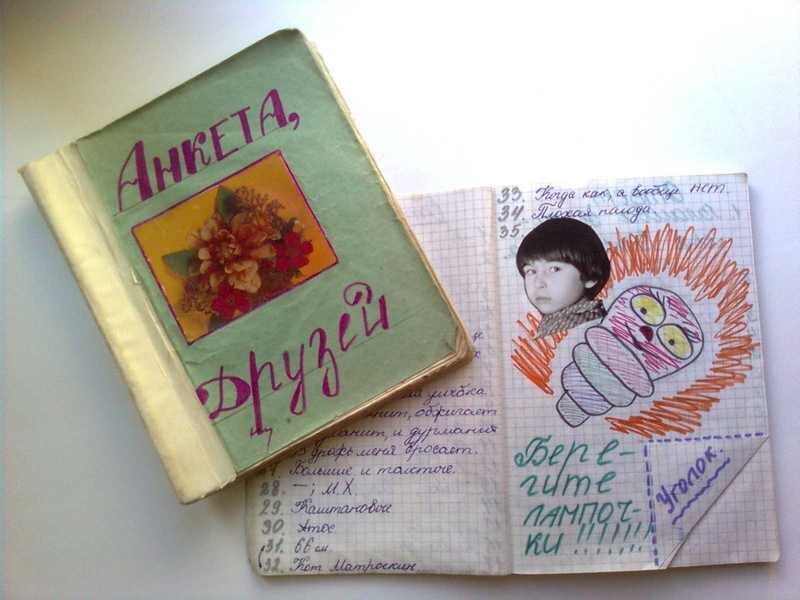 АНКЕТА,
Друзей
на улыбка
манит, обжигает
и дурманит, и дурмания
в дрожь меня бросает.
Большие и толстые.
28. —; М.Х.
29. Каштановые
30. Атос.
31. 66 см
32. Кот Матроскин.
33. Когда как, а вообще нет.
34. Плохая погода.
35.
Бере-
гите
лампоч-
ки !!!!!!!
Уголок.